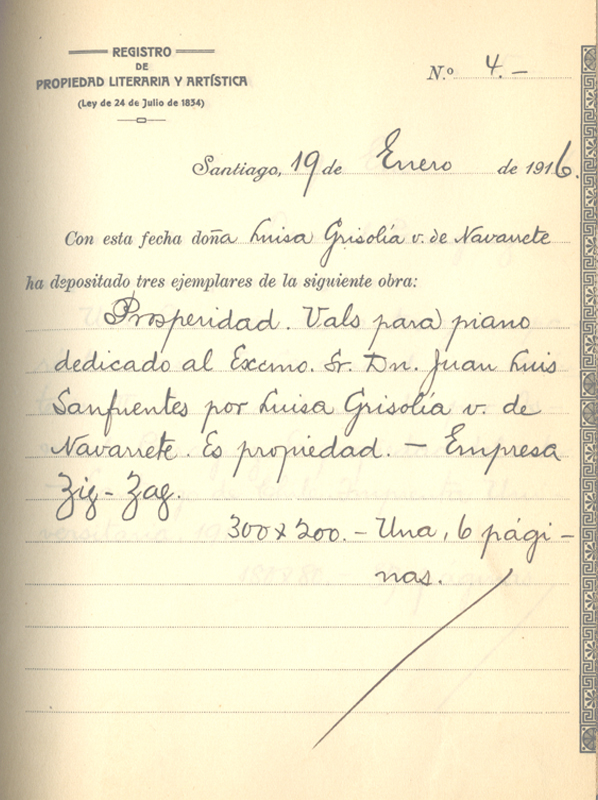 REGISTRO
DE
PROPIEDAD LITERARIA Y ARTÍSTICA
(Ley de 24 de Julio de 1834)
N.º 4.-
Santiago, 19 de Enero de 1916.
Con esta fecha doña Luisa Grisolía v. de Navarrete
ha depositado tres ejemplares de la siguiente obra:
Prosperidad. Vals para piano
dedicado al Excmo. Sr. Dn. Juan Luis
Sanfuentes por Luisa Grisolía v. de
Navarrete. Es propiedad. - Empresa
Zig-Zag.
300 x 200. - Una, 6 pági-
nas.